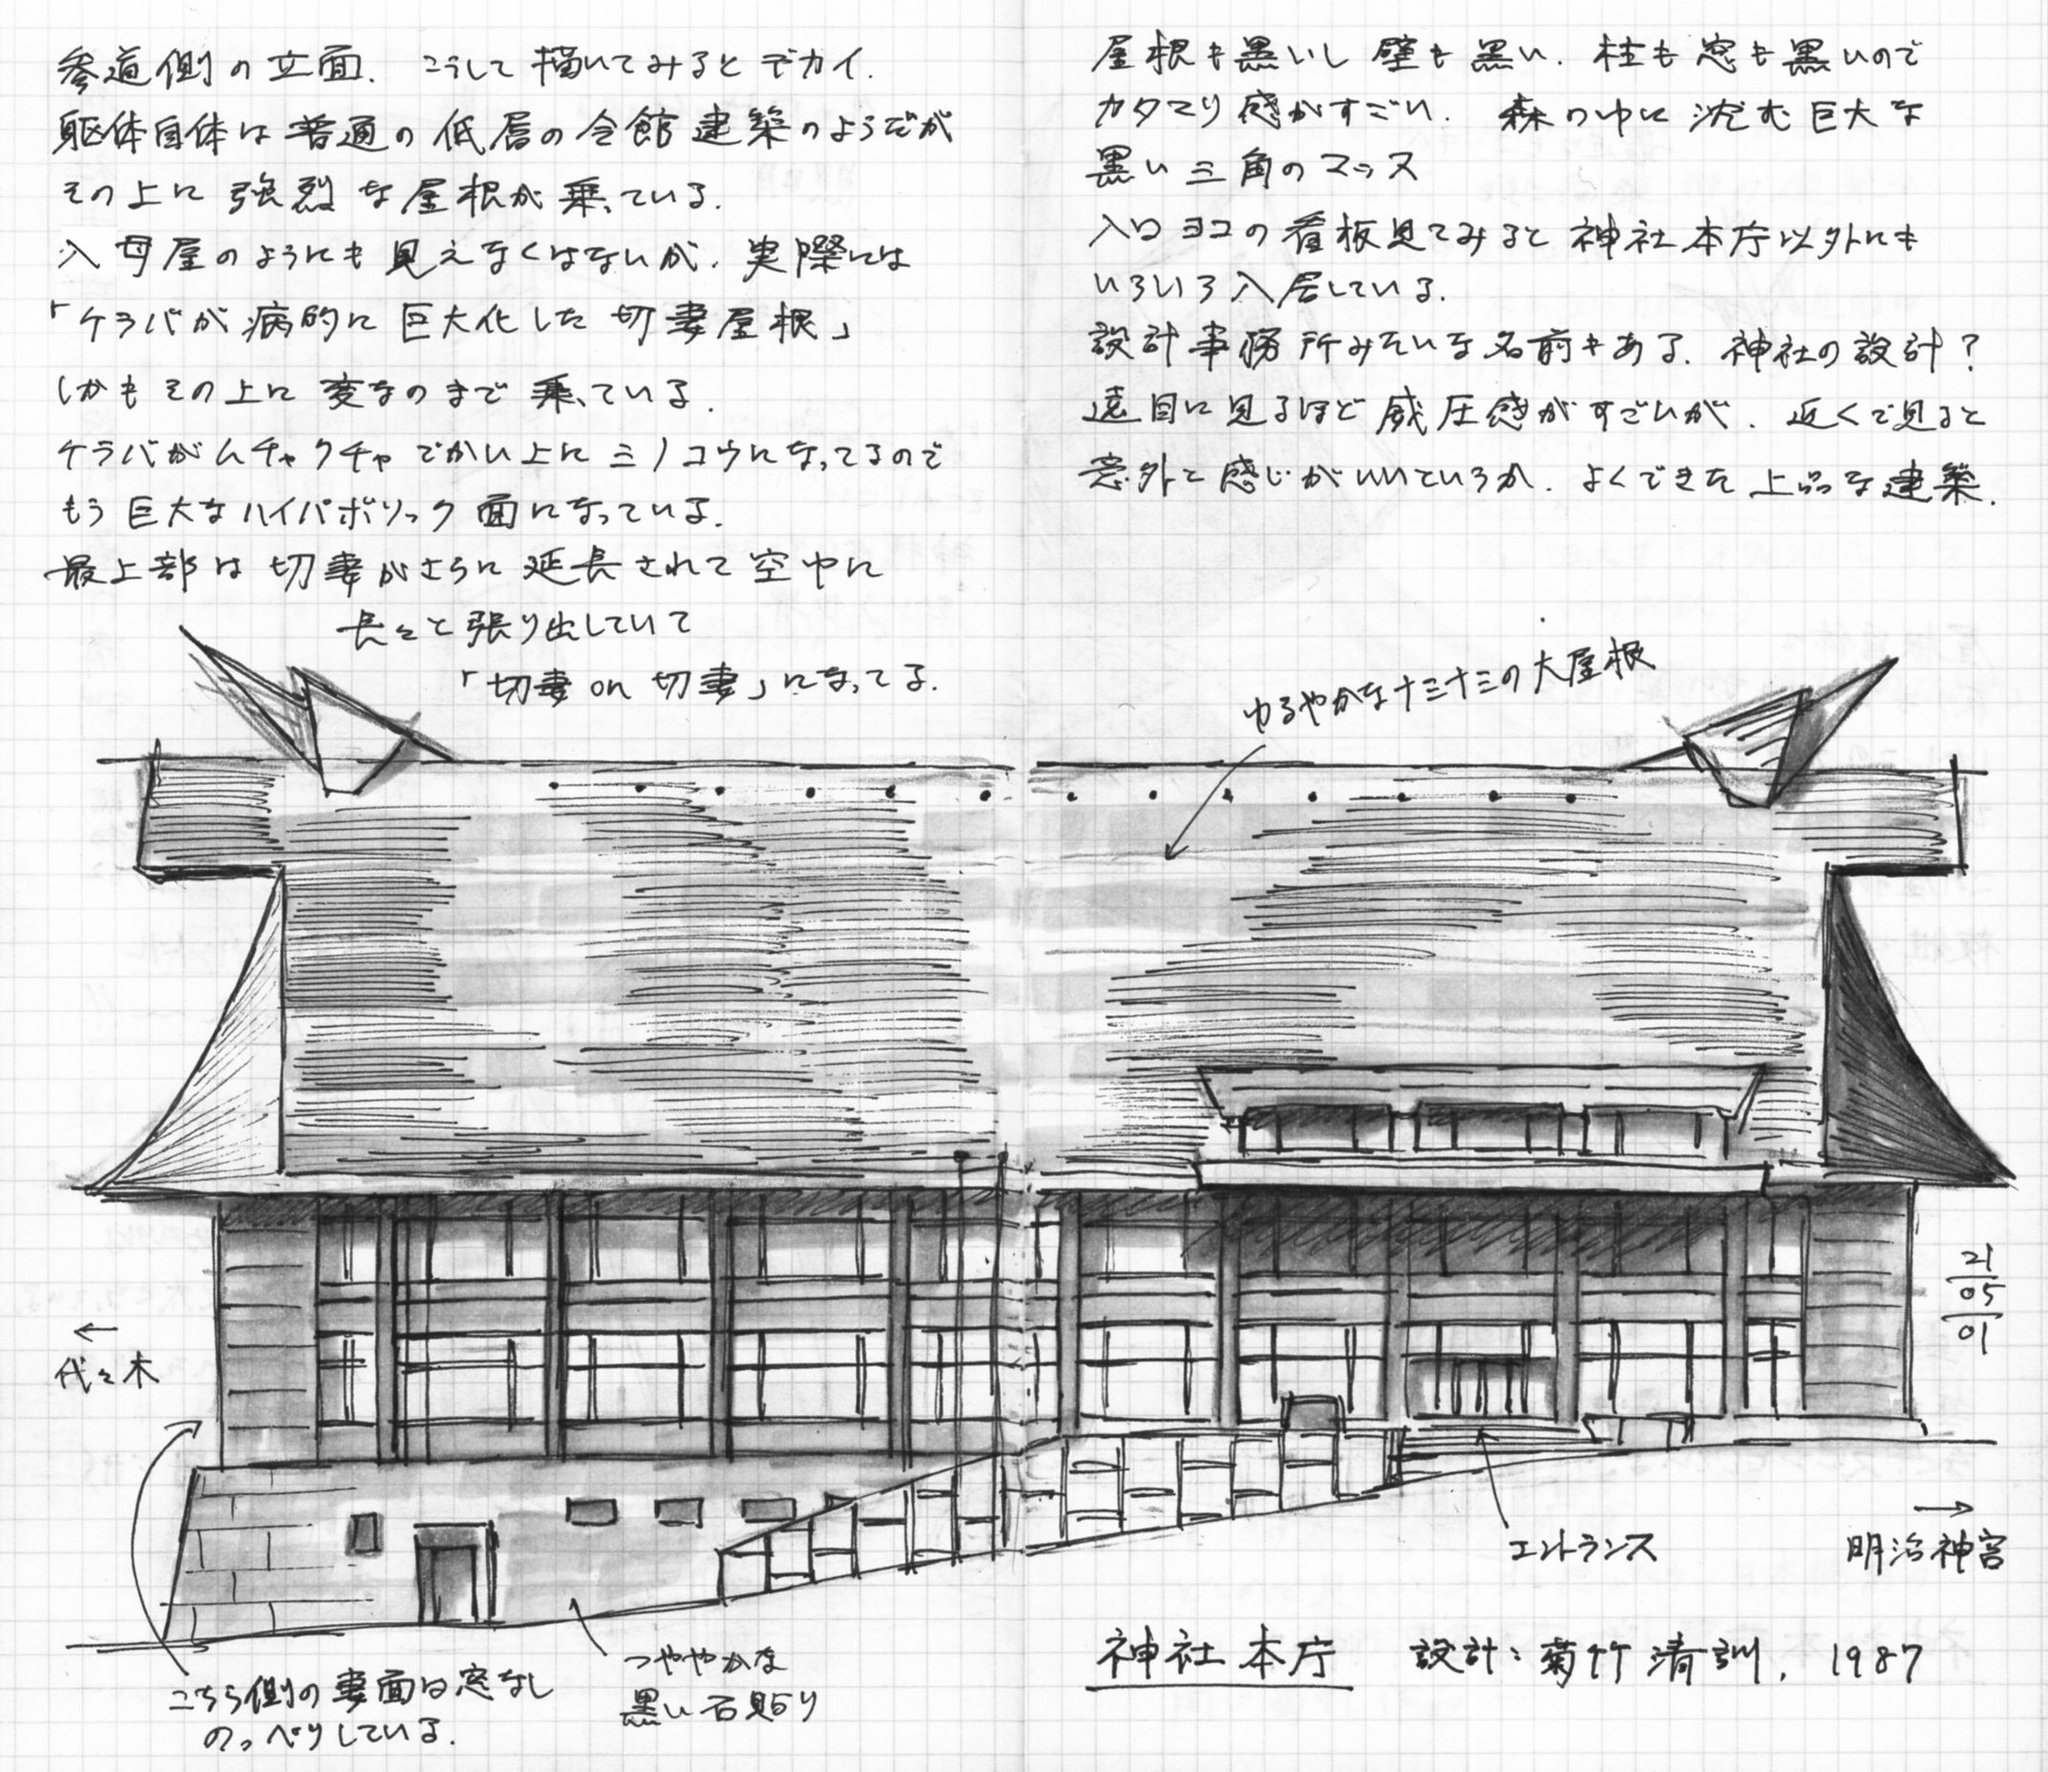 参道側の立面. こうして描いてみるとデカイ.
躯体自体は普通の低層の会館建築のようだが
その上に強烈な屋根が乗っている.
入母屋のようにも見えなくはないが. 実際には
「ケラバが病的に巨大化した切妻屋根」
しかもその上に変なのまで乗っている.
ケラバがムチャクチャでかい上にミノコウになってるので
もう巨大なハイパボリック面になっている.
最上部は切妻がさらに延長されて空中に
長々と張り出していて
「切妻on切妻」になってる.
屋根も黒いし壁も黒い. 柱も窓も黒いので
カタマリ感がすごい. 森の中に沈む巨大な
黒い三角のマッス
入口ヨコの看板見てみると神社本庁以外にも
いろいろ入居している.
設計事務所みたいな名前もある. 神社の設計?
遠目に見るほど威圧感がすごいが. 近くで見ると
意外と感じがいいというか. よくできた上品な建築.
ゆるやかなナミナミの大屋根
21
05
01
←
代々木
→
明治神宮
エントランス
つややかな
黒い石貼り
こちら側の妻面は窓なし
のっぺりしている.
神社本庁 設計: 菊竹清訓, 1987